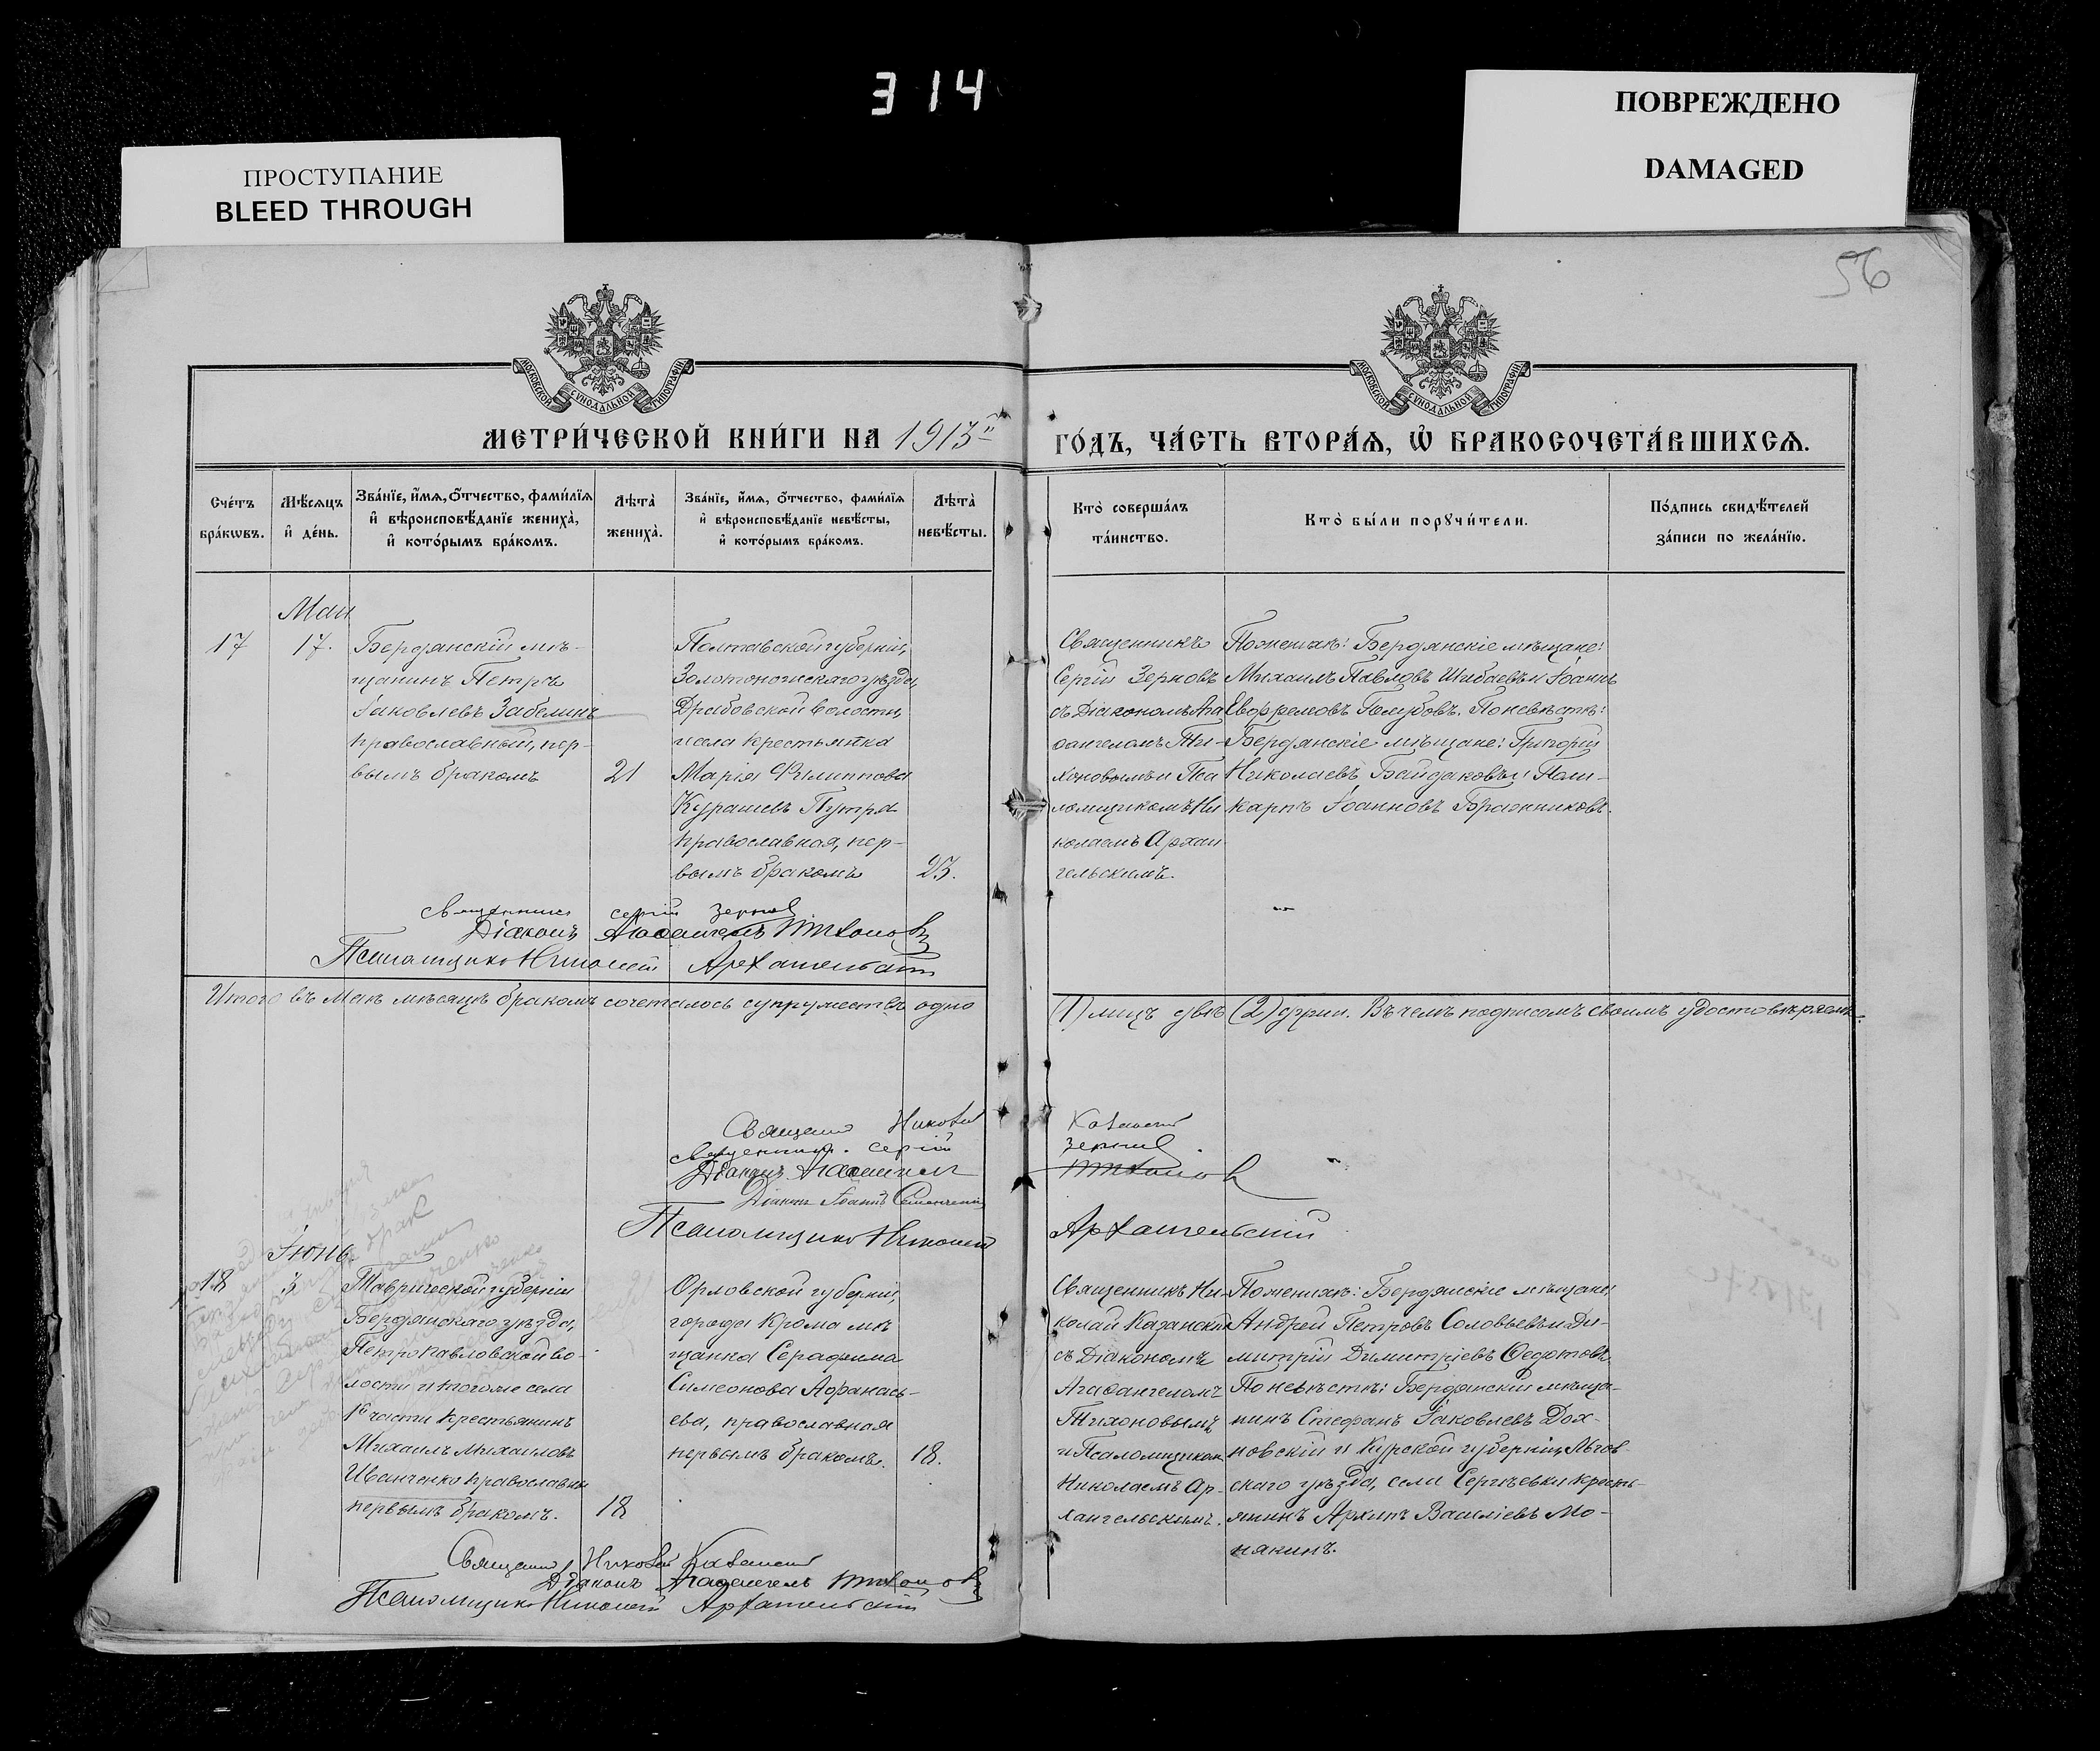 314
ПРОСТУПАНИЕ
BLEED THROUGH
ПОВРЕЖДЕНО
DAMAGED
56
МОСКОВСКОЙ СУНОДАЛЬНОЙ ТИПОГРАФІИ
МОСКОВСКОЙ СУНОДАЛЬНОЙ ТИПОГРАФІИ
МЕТРИ́ЧЕСКОЙ КНИ́ГИ НА 1913й
ГО́ДЪ, ЧА́СТЬ ВТОРА́Ѧ, Ѡ҆ БРАКОСОЧЕТА́ВШИХСѦ.
Сче́тъ бра́кѡвъ.
Мѣ́сѧцъ и҆ де́нь.
Зва́нїе, и҆́мѧ, ѻ҆́тчество, фами́лїѧ
и҆ вѣроисповѣ́данїе жениха̀,
и҆ кото́рымъ бра́комъ.
Лѣта̀ жениха̀.
Зва́нїе, и҆́мѧ, ѻ҆́тчество, фами́лїѧ
и҆ вѣроисповѣ́данїе невѣ́сты,
и҆ кото́рымъ бра́комъ.
Лѣта̀ невѣ́сты.
Кто̀ соверша́лъ
та́инство.
Кто̀ бы́ли порꙋчи́тели.
По́дпись свидѣ́телей
за́писи по жела́нїю.
Маи
17
17.
Бердянскій мѣ-
щанинъ Петръ
Іаковлевъ Забелинъ
православный, пер-
вымъ бракомъ
21
Полтавской губерніи,
Золотоношскаго уѣзда,
Драбовской волости,
и села крестьянка
Марія Филиппова
Курашевъ Путря
православная, пер-
вымъ бракомъ
23.
Священникъ
Сергій Зерновъ
съ Діакономъ Ага
ѳангеломъ Ти-
хоновымъ и Пса
ломщикомъ Ни
колаемъ Архан
гельскимъ.
По женихѣ: Бердянскіе мѣщане:
Михаилъ Павловъ Шибаевъ и Іоаннъ
Евфремовъ Голубовъ. По невѣстѣ:
Бердянскіе мѣщане: Григорій
Николаевъ Байдаковъ и Поли-
карпъ Іоанновъ Бражниковъ.
Священникъ Сергій Зерновъ
Діаконъ Агаѳангелъ Тихоновъ
Псаломщикъ Николай Архангельскій
Итого въ Маѣ мѣсяцѣ бракомъ сочеталось супружество одно
(1) лицъ двѣ (2) души. Въ чемъ подписомъ своимъ удостовѣряемъ.
Священникъ Николай Казанскій
Священникъ Сергій Зерновъ
Діаконъ Агаѳангелъ Тихоновъ
Діаконъ Іоаннъ
Псаломщикъ Николай Архангельскій
Іюнь
18
Таврической губерніи
Бердянскаго уѣзда,
Петропавловской во-
лости и того же села
1й части крестьянинъ
Михаилъ Михаиловъ
Иванченко православный
первымъ бракомъ.
18
Орловской губерніи,
города Крома мѣ
щанка Серафима
Симеонова Афанась-
ева, православная
первымъ бракомъ.
18.
Священникъ Ни-
колай Казанскій
съ Діакономъ
Агаѳангеломъ
Тихоновымъ
и Псаломщиком
Николаемъ Ар-
хангельскимъ.
По женихѣ: Бердянскіе мѣщане:
Андрей Петровъ Соловьевъ и Ди-
митрій Димитріевъ Ѳедотовъ.
По невѣстѣ: Бердянскій мѣща-
нинъ Стефанъ Іаковлевъ Дох-
новскій и Курской губерніи, Льгов-
скаго уѣзда, села Сергѣевки кресть-
янинъ Архипъ Василіевъ Мо-
някинъ.
Священникъ Николай Казанскій
Діаконъ Агаѳангелъ Тихоновъ
Псаломщикъ Николай Архангельскій